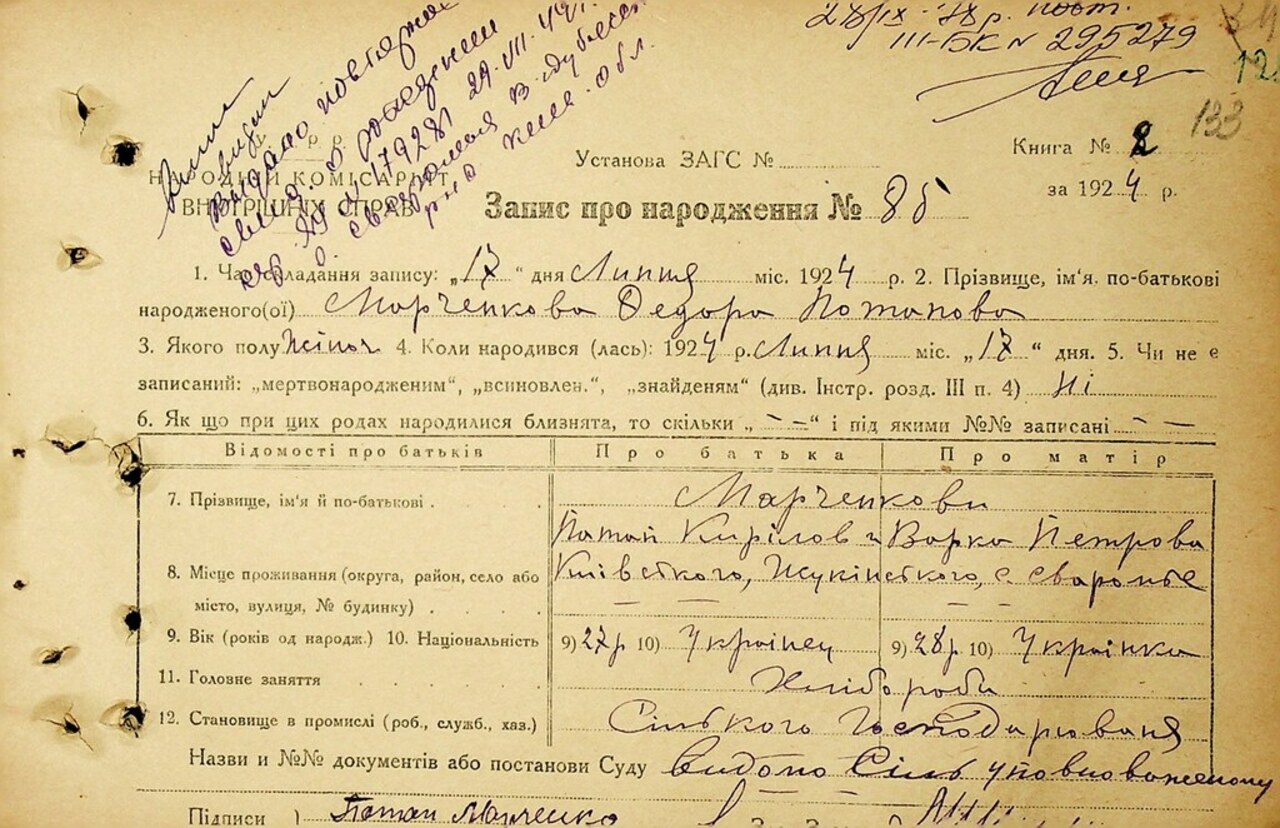 28/IX-78 р. повт.
III-БК N 295279
133
Видано повторне
свид. о рождении
179281 29.VII.49
Установа ЗАГС №
Книга № 2
за 1924 р.
НАРОДНІЙ КОМІСАРІЯТ
ВНУТРІШНІХ СПРАВ
Запис про народження № 86
1. Час складання запису: „17“ дня Липця міс. 1924 р. 2. Прізвище, ім'я, по-батькові
народженого(ої) Марченкова Федора Потапова
3. Якого полу 4. Коли народився (лась): 1924 р. Липця міс. „17“ дня. 5. Чи не є
записаний: „мертвонародженим“, „всиновлен.“, „знайденям“ (див. Інстр. розд. III п. 4) Ні
6. Як що при цих родах народилися близнята, то скільки „– –“ і під якими №№ записані – –
Відомості про батьків Про батька Про матір
7. Прізвище, ім'я й по-батькові Марченкови
Потап Кирілов и Варка Петрова
8. Місце проживання (округа, район, село або Київського, Жукінського, с. Сваромье
місто, вулиця, № будинку) – – – –
9. Вік (років од народж.) 10. Національність 9) 27 р 10) Українец 9) 28 р 10) Українка
11. Головне заняття Хлібороби
12. Становище в промислі (роб., служб., хаз.) Сільського Господарюваня
Назви и №№ документів або постанови Суду видоно Сіль уповноваженому
Підписи Потап Марченко